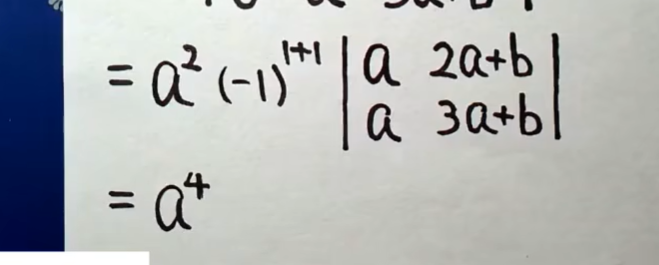 = a²(-1)¹⁺¹ | a 2a+b |
| a 3a+b |
= a⁴